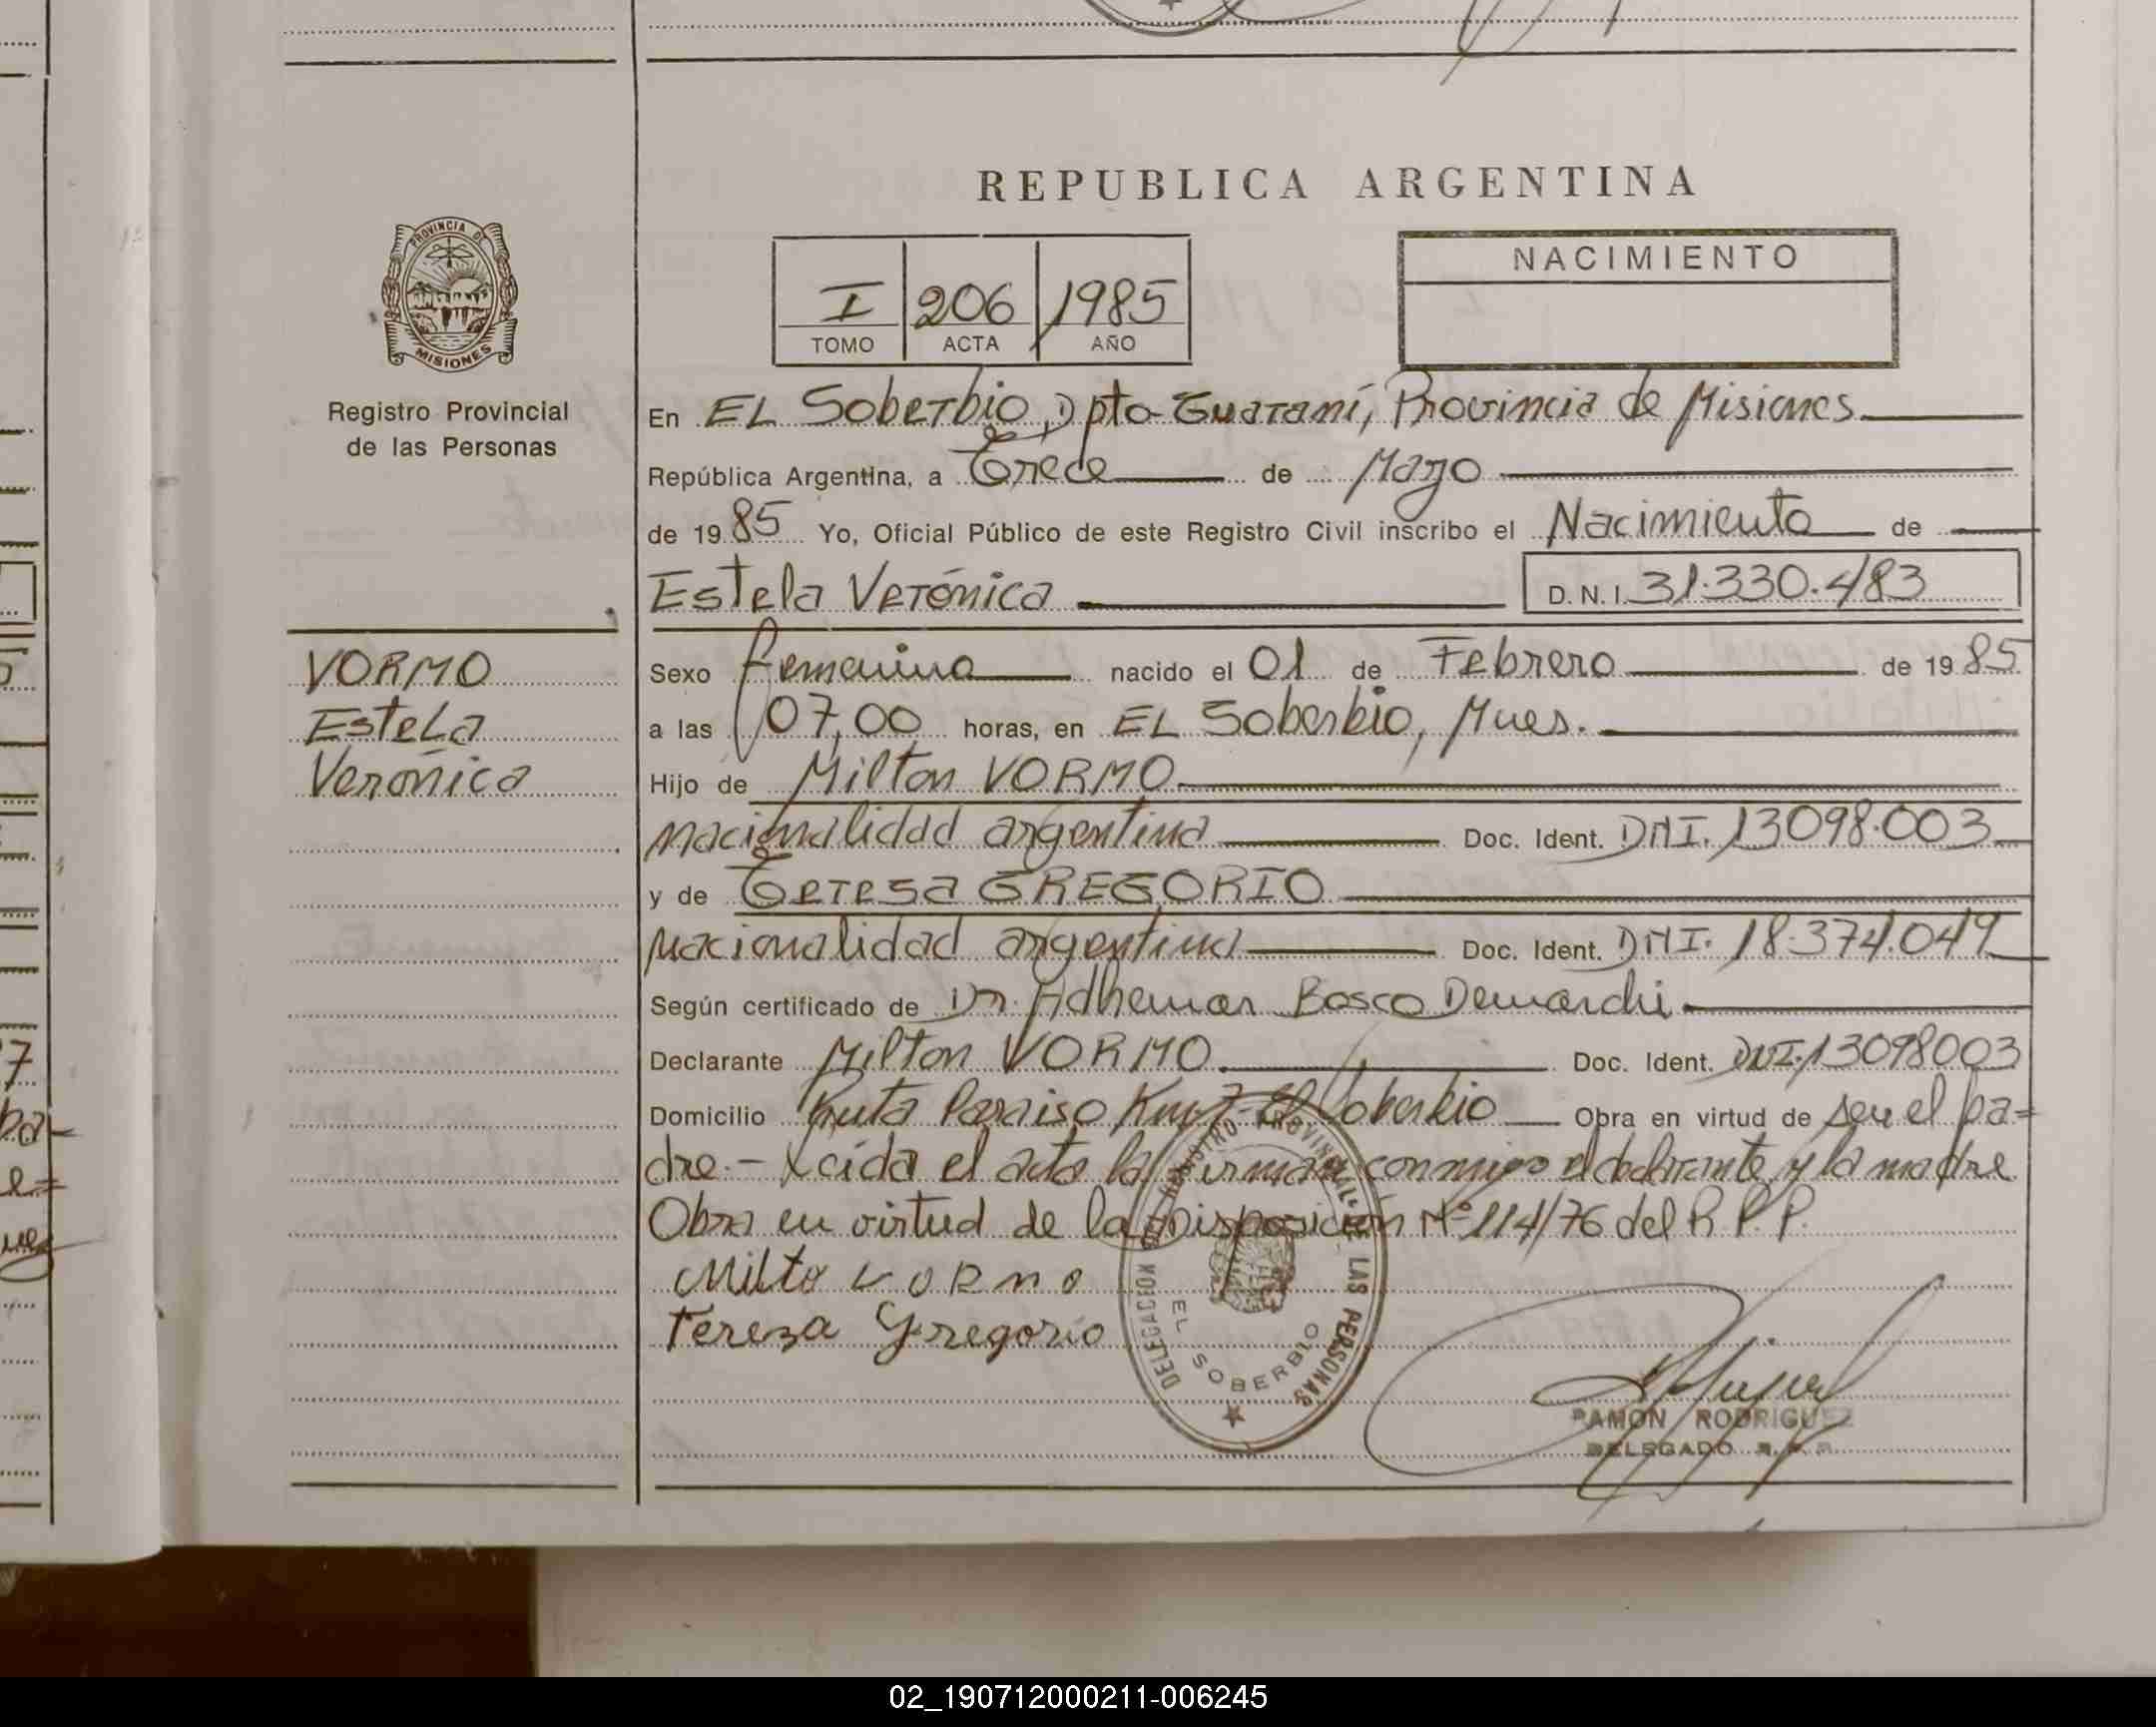 REPUBLICA ARGENTINA
PROVINCIA DE
MISIONES
Registro Provincial
de las Personas
I 206 1985
TOMO ACTA AÑO
NACIMIENTO
En EL Soberbio, Dpto Guaraní, Provincia de Misiones
República Argentina, a Trece de Mayo
de 1985 Yo, Oficial Público de este Registro Civil inscribo el Nacimiento de
Estela Verónica D.N.I. 31.330.483
VORMO
Estela
Verónica
Sexo femenino nacido el 01 de Febrero de 1985
a las 07,00 horas, en EL Soberbio, Mnes.
Hijo de Milton VORMO
nacionalidad argentina Doc. Ident. DNI. 13098.003
y de Teresa GREGORIO
nacionalidad argentina Doc. Ident. DNI. 18.374.049
Según certificado de Dr. Adhemar Bosco Demarchi
Declarante Milton VORMO Doc. Ident. DNI. 13098003
Domicilio Ruta Paraiso Km 7 - El Soberbio Obra en virtud de ser el pa=
dre.- Leída el acta la firman conmigo el declarante y la madre
Obra en virtud de la Disposición Nº 114/76 del R.P.P.
Milto vormo
Tereza Gregorio
DELEGACION REGISTRO PROVINCIAL DE LAS PERSONAS
EL SOBERBIO
RAMON RODRIGUEZ
DELEGADO R.P.P.
02_190712000211-006245